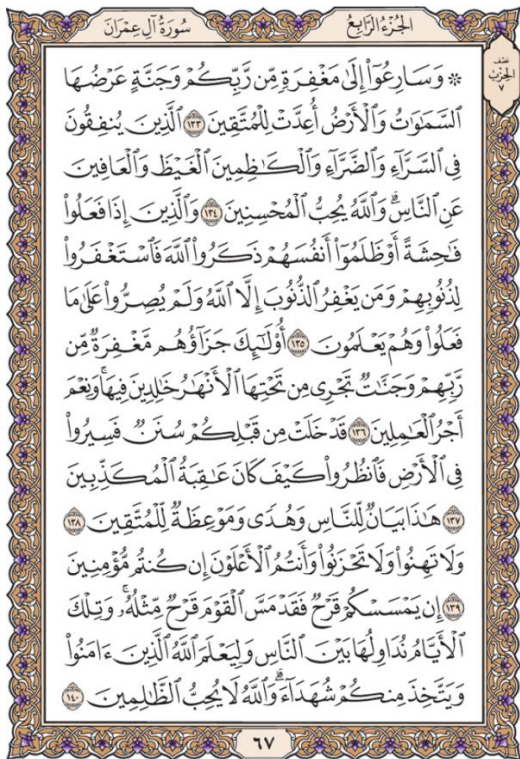 سُورَةُ آلِ عِمْرَانَ
الجُزْءُ الرَّابِعُ
نصف
الحِزْب
٧
۞ وَسَارِعُوٓاْ إِلَىٰ مَغْفِرَةٖ مِّن رَّبِّكُمۡ وَجَنَّةٍ عَرۡضُهَا
ٱلسَّمَٰوَٰتُ وَٱلۡأَرۡضُ أُعِدَّتۡ لِلۡمُتَّقِينَ ١٣٣ ٱلَّذِينَ يُنفِقُونَ
فِي ٱلسَّرَّآءِ وَٱلضَّرَّآءِ وَٱلۡكَٰظِمِينَ ٱلۡغَيۡظَ وَٱلۡعَافِينَ
عَنِ ٱلنَّاسِۗ وَٱللَّهُ يُحِبُّ ٱلۡمُحۡسِنِينَ ١٣٤ وَٱلَّذِينَ إِذَا فَعَلُواْ
فَٰحِشَةً أَوۡ ظَلَمُوٓاْ أَنفُسَهُمۡ ذَكَرُواْ ٱللَّهَ فَٱسۡتَغۡفَرُواْ
لِذُنُوبِهِمۡ وَمَن يَغۡفِرُ ٱلذُّنُوبَ إِلَّا ٱللَّهُ وَلَمۡ يُصِرُّواْ عَلَىٰ مَا
فَعَلُواْ وَهُمۡ يَعۡلَمُونَ ١٣٥ أُوْلَٰٓئِكَ جَزَآؤُهُم مَّغۡفِرَةٞ مِّن
رَّبِّهِمۡ وَجَنَّٰتٞ تَجۡرِي مِن تَحۡتِهَا ٱلۡأَنۡهَٰرُ خَٰلِدِينَ فِيهَاۚ وَنِعۡمَ
أَجۡرُ ٱلۡعَٰمِلِينَ ١٣٦ قَدۡ خَلَتۡ مِن قَبۡلِكُمۡ سُنَنٞ فَسِيرُواْ
فِي ٱلۡأَرۡضِ فَٱنظُرُواْ كَيۡفَ كَانَ عَٰقِبَةُ ٱلۡمُكَذِّبِينَ
١٣٧ هَٰذَا بَيَانٞ لِّلنَّاسِ وَهُدٗى وَمَوۡعِظَةٞ لِّلۡمُتَّقِينَ ١٣٨
وَلَا تَهِنُواْ وَلَا تَحۡزَنُواْ وَأَنتُمُ ٱلۡأَعۡلَوۡنَ إِن كُنتُم مُّؤۡمِنِينَ
١٣٩ إِن يَمۡسَسۡكُمۡ قَرۡحٞ فَقَدۡ مَسَّ ٱلۡقَوۡمَ قَرۡحٞ مِّثۡلُهُۥۚ وَتِلۡكَ
ٱلۡأَيَّامُ نُدَاوِلُهَا بَيۡنَ ٱلنَّاسِ وَلِيَعۡلَمَ ٱللَّهُ ٱلَّذِينَ ءَامَنُواْ
وَيَتَّخِذَ مِنكُمۡ شُهَدَآءَۗ وَٱللَّهُ لَا يُحِبُّ ٱلظَّٰلِمِينَ ١٤٠
٦٧